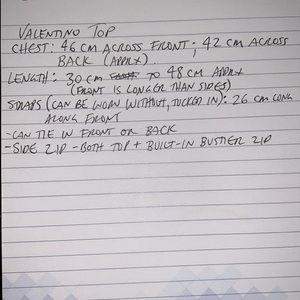 VALENTINO TOP
CHEST: 46 CM ACROSS FRONT; 42 CM ACROSS
BACK (APPRX).
LENGTH: 30 CM TO 48 CM APPRX
(FRONT IS LONGER THAN SIDES)
STRAPS (CAN BE WORN WITHOUT, TUCKED IN): 26 CM LONG
ALONG FRONT
-CAN TIE IN FRONT OR BACK
-SIDE ZIP - BOTH TOP + BUILT-IN BUSTIER ZIP